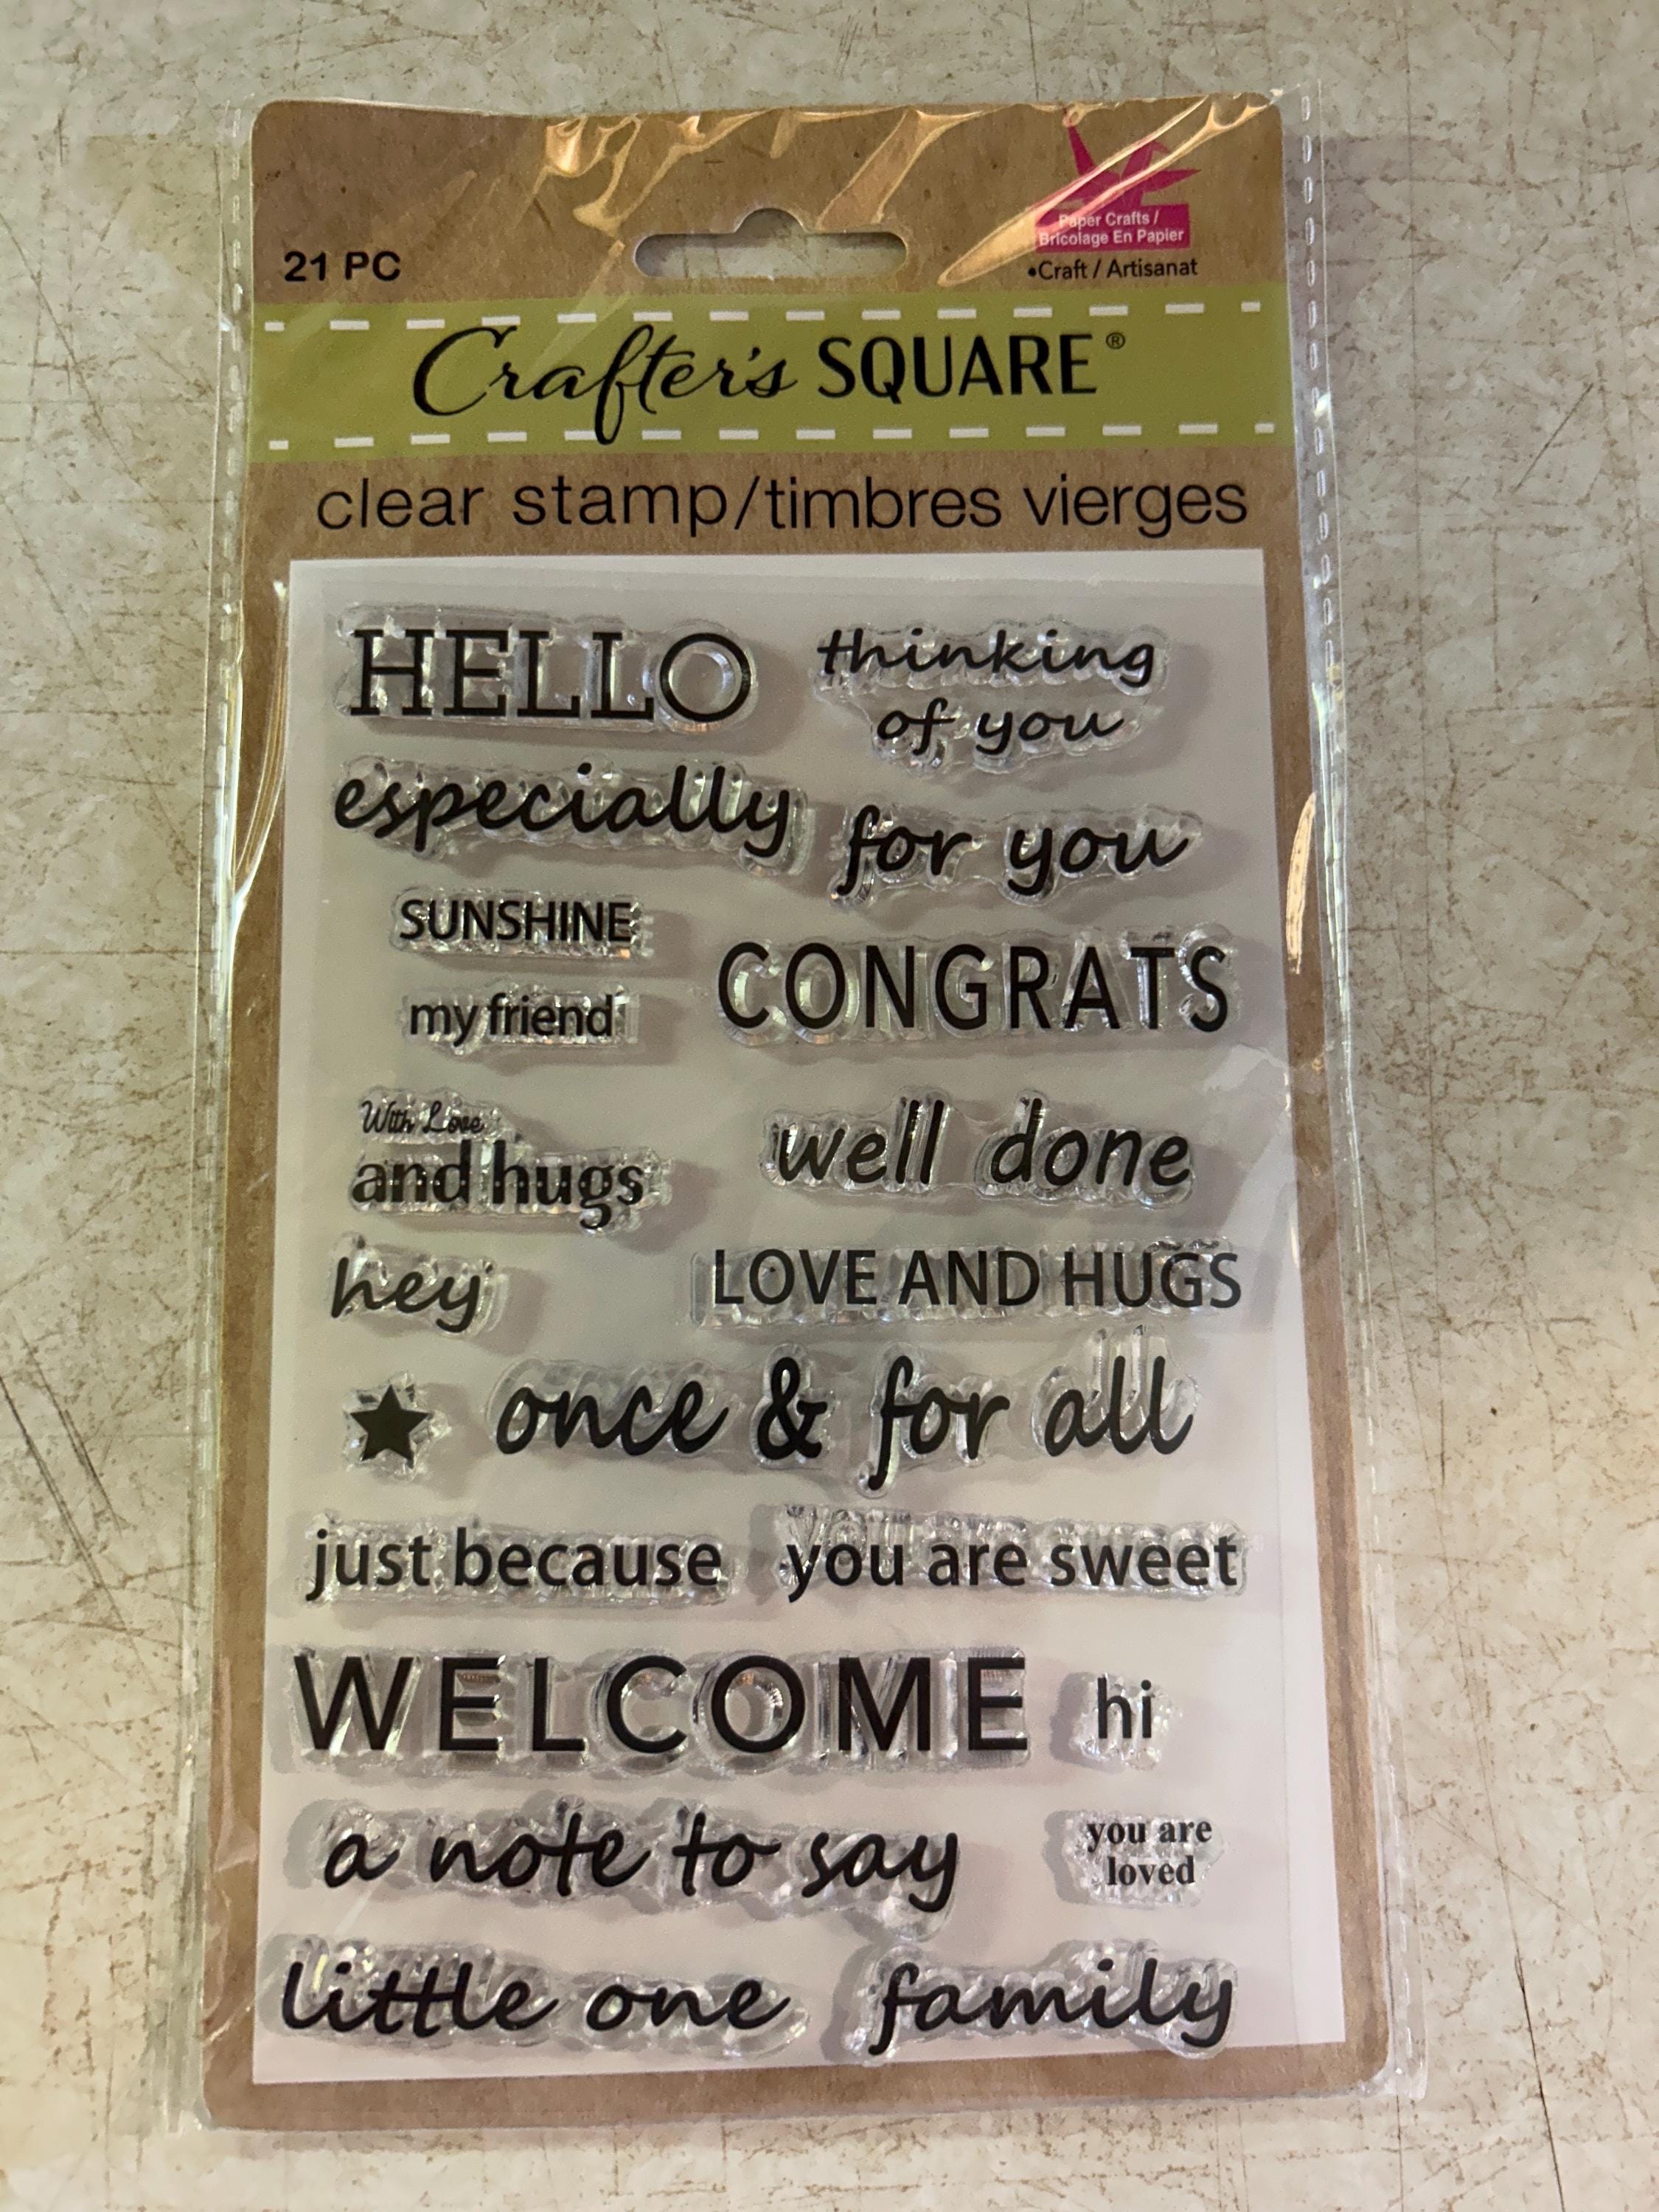 21 PC
Paper Crafts /
Bricolage En Papier
•Craft / Artisanat
Crafter's SQUARE®
clear stamp/timbres vierges
HELLO
thinking
of you
especially
for you
SUNSHINE
CONGRATS
my friend
With Love
and hugs
well done
hey
LOVE AND HUGS
once & for all
just because
you are sweet
WELCOME
hi
a note to say
you are
loved
little one
family